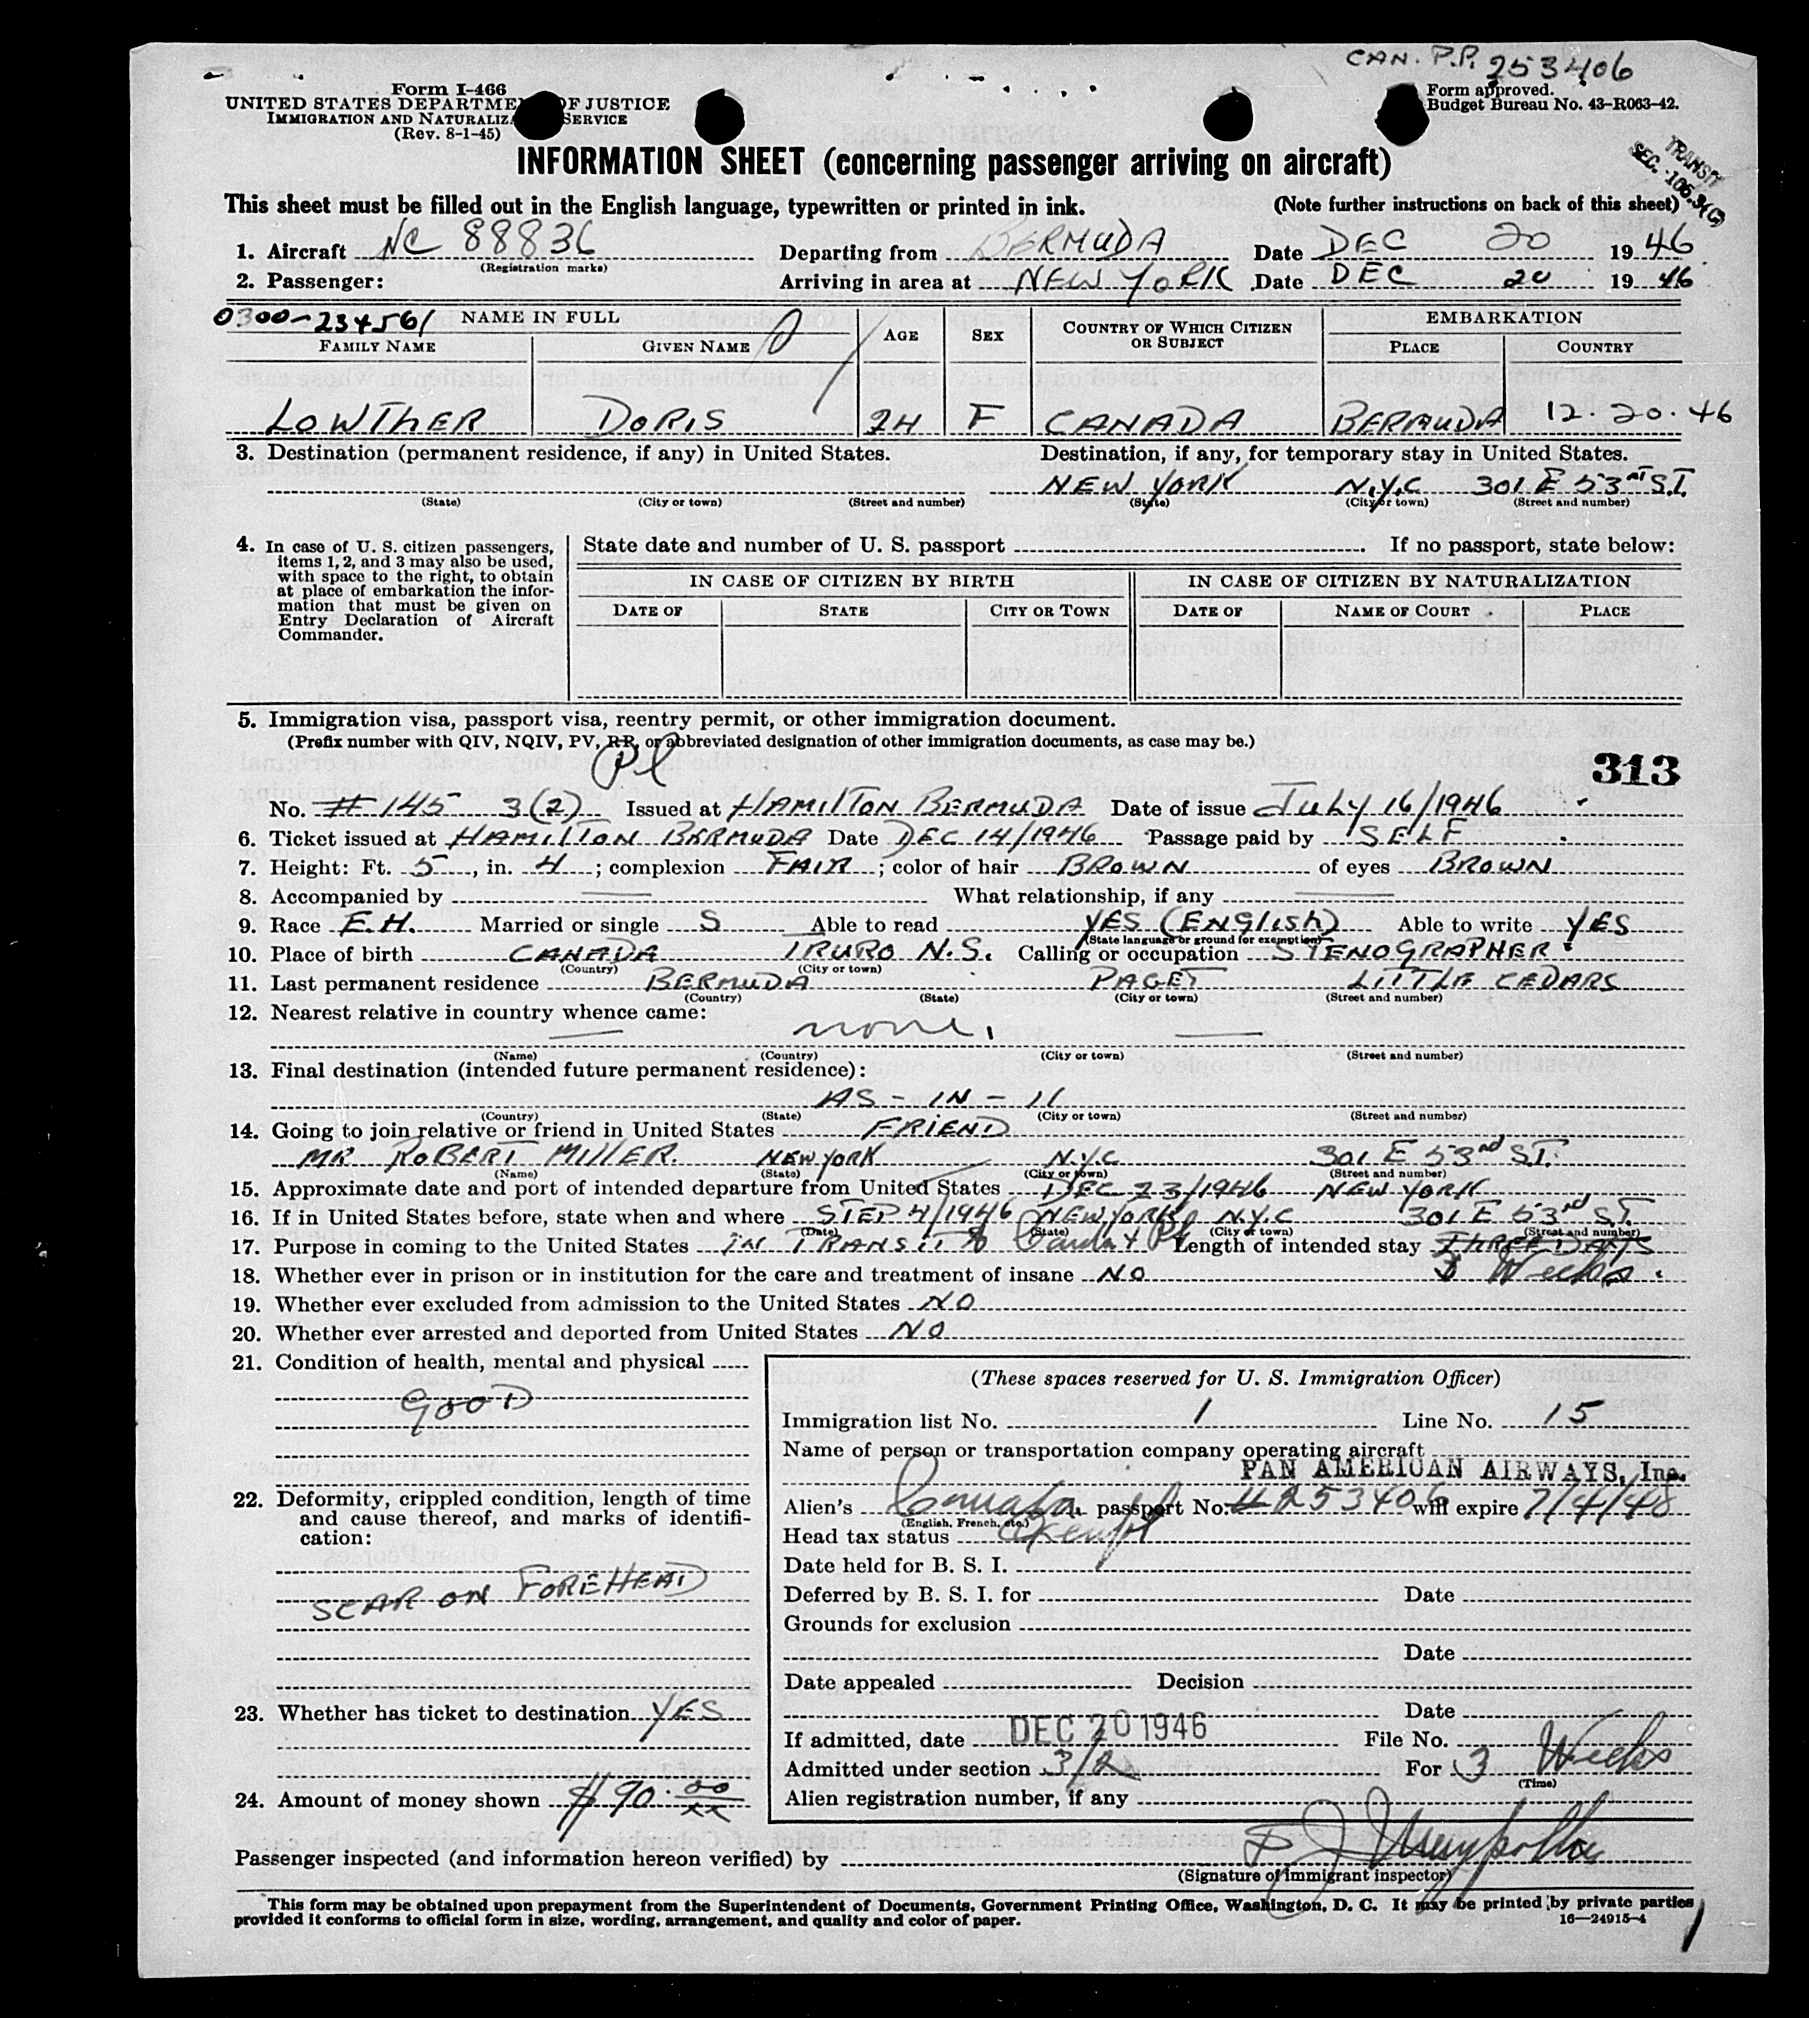 CAN. P.P. 253406
Form I-466
UNITED STATES DEPARTMENT OF JUSTICE
IMMIGRATION AND NATURALIZATION SERVICE
(Rev. 8-1-45)
Form approved.
Budget Bureau No. 43-R063-42.
TRANSIT
SEC. 105.3(C)
INFORMATION SHEET (concerning passenger arriving on aircraft)
This sheet must be filled out in the English language, typewritten or printed in ink. (Note further instructions on back of this sheet)
1. Aircraft NC 88836 Departing from BERMUDA Date DEC 20 1946
(Registration marks)
2. Passenger: Arriving in area at NEW YORK Date DEC 20 1946
0300-234561 NAME IN FULL AGE SEX COUNTRY OF WHICH CITIZEN OR SUBJECT EMBARKATION
FAMILY NAME GIVEN NAME PLACE COUNTRY
LOWTHER DORIS 24 F CANADA BERMUDA 12.20.46
3. Destination (permanent residence, if any) in United States. Destination, if any, for temporary stay in United States.
NEW YORK N.Y.C 301 E 53 ST.
(State) (City or town) (Street and number) (State) (City or town) (Street and number)
4. In case of U. S. citizen passengers,
items 1, 2, and 3 may also be used,
with space to the right, to obtain
at place of embarkation the infor-
mation that must be given on
Entry Declaration of Aircraft
Commander.
State date and number of U. S. passport If no passport, state below:
IN CASE OF CITIZEN BY BIRTH IN CASE OF CITIZEN BY NATURALIZATION
DATE OF STATE CITY OR TOWN DATE OF NAME OF COURT PLACE
5. Immigration visa, passport visa, reentry permit, or other immigration document.
(Prefix number with QIV, NQIV, PV, RP, or abbreviated designation of other immigration documents, as case may be.)
313
No. #145 3(2) Issued at HAMILTON BERMUDA Date of issue JULY 16/1946
6. Ticket issued at HAMILTON BERMUDA Date DEC 14/1946 Passage paid by SELF
7. Height: Ft. 5, in. 4; complexion FAIR; color of hair BROWN of eyes BROWN
8. Accompanied by What relationship, if any
9. Race E.H. Married or single S Able to read YES (ENGLISH) Able to write YES
(State language or ground for exemption)
10. Place of birth CANADA TRURO N.S. Calling or occupation STENOGRAPHER
(Country) (City or town)
11. Last permanent residence BERMUDA PAGET LITTLE CEDARS
(Country) (State) (City or town) (Street and number)
12. Nearest relative in country whence came:
none.
(Name) (Country) (City or town) (Street and number)
13. Final destination (intended future permanent residence):
AS - IN - 11
(Country) (State) (City or town) (Street and number)
14. Going to join relative or friend in United States FRIEND
MR ROBERT MILLER NEW YORK N.Y.C 301 E 53nd ST.
(Name) (State) (City or town) (Street and number)
15. Approximate date and port of intended departure from United States DEC 23/1946 NEW YORK
16. If in United States before, state when and where 4/1946 NEW YORK N.Y.C 301 E 53rd ST.
(Date) (State) (City or town) (Street and number)
17. Purpose in coming to the United States IN TRANSIT Length of intended stay THREE DAYS
18. Whether ever in prison or in institution for the care and treatment of insane NO 3 Weeks.
19. Whether ever excluded from admission to the United States NO
20. Whether ever arrested and deported from United States NO
21. Condition of health, mental and physical
GOOD
22. Deformity, crippled condition, length of time
and cause thereof, and marks of identifi-
cation:
SCAR ON FOREHEAD
23. Whether has ticket to destination YES
24. Amount of money shown $90.00/xx
(These spaces reserved for U. S. Immigration Officer)
Immigration list No. 1 Line No. 15
Name of person or transportation company operating aircraft
PAN AMERICAN AIRWAYS, Inc.
Alien's Canada passport No. #253406 will expire 7/4/48
(English, French, etc.)
Head tax status Exempt
Date held for B. S. I.
Deferred by B. S. I. for Date
Grounds for exclusion
Date
Date appealed Decision
Date
If admitted, date DEC 20 1946 File No.
Admitted under section 3/2 For 3 Weeks
(Time)
Alien registration number, if any
Passenger inspected (and information hereon verified) by
(Signature of immigrant inspector)
This form may be obtained upon prepayment from the Superintendent of Documents, Government Printing Office, Washington, D. C. It may be printed by private parties
provided it conforms to official form in size, wording, arrangement, and quality and color of paper.
16—24915-4